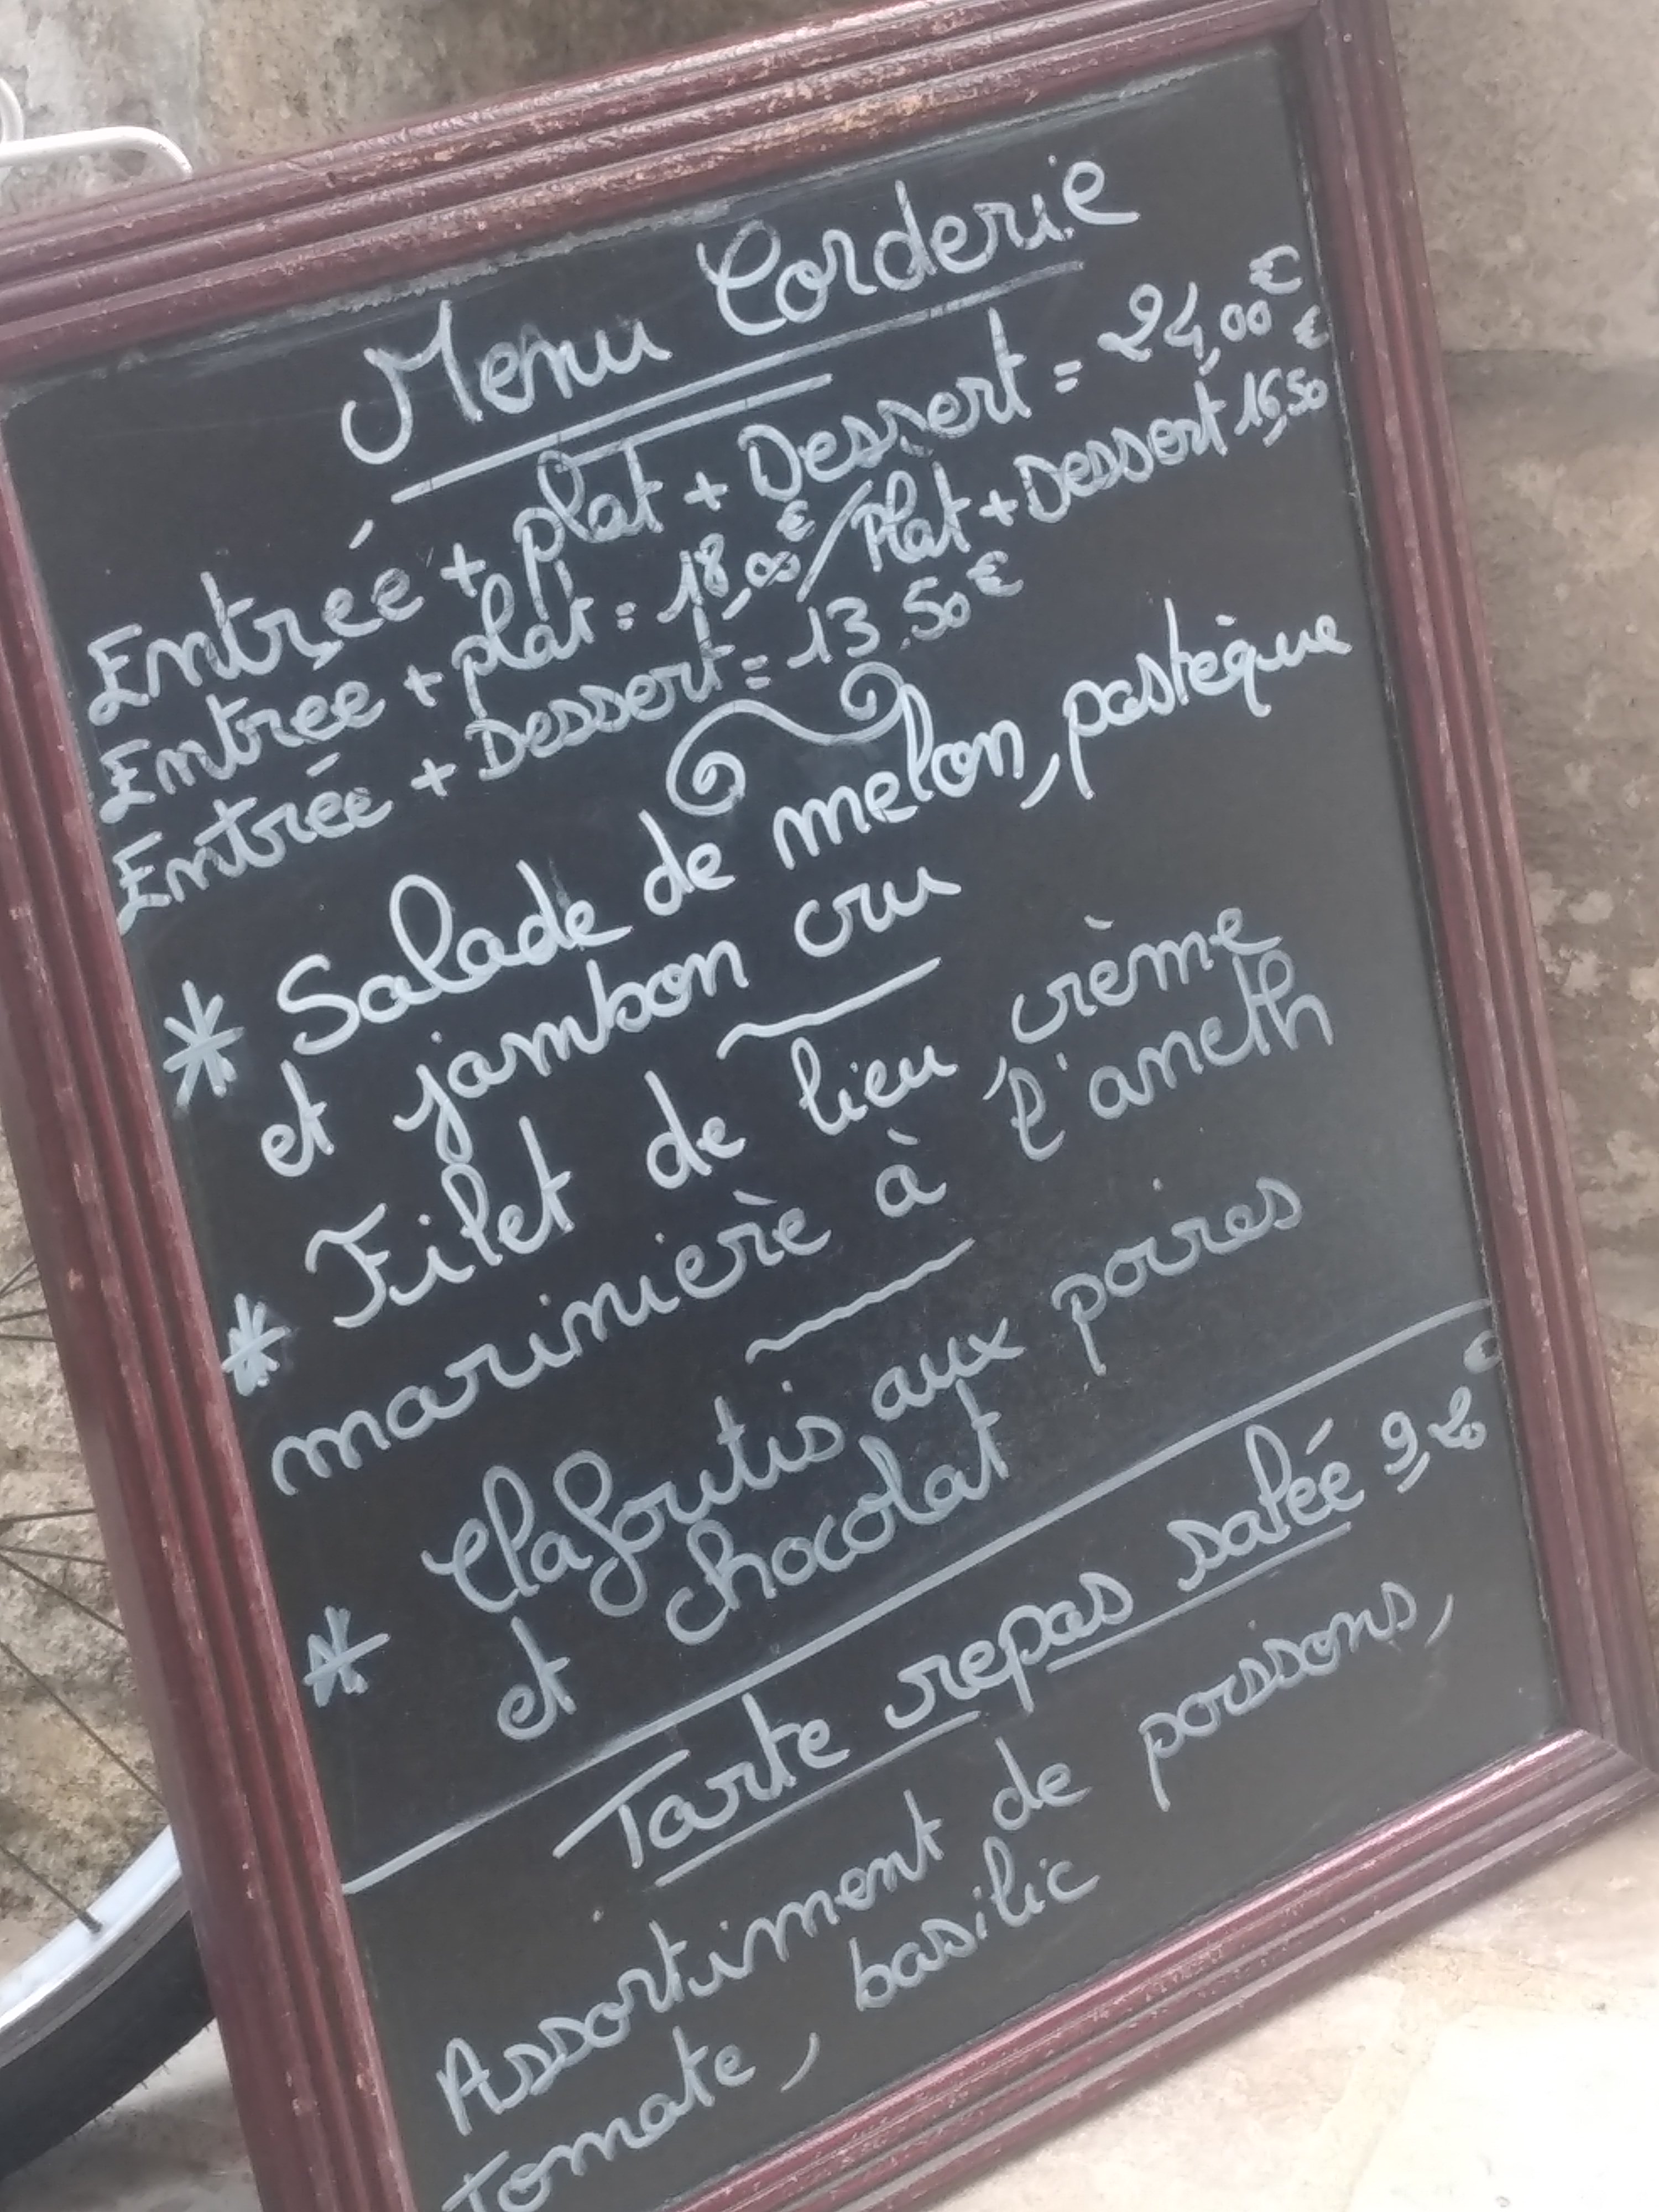 Menu Corderie
Entrée + plat + Dessert = 24,00€
Entrée + plat = 18,00€/Plat + Dessert 16,50€
Entrée + Dessert = 13.50€
* Salade de melon, pastèque
et jambon cru
* Filet de lieu, crème
marinière à l'aneth
* Clafoutis aux poires
et chocolat
Tarte repas salée 9,20€
Assortiment de poissons,
tomate, basilic